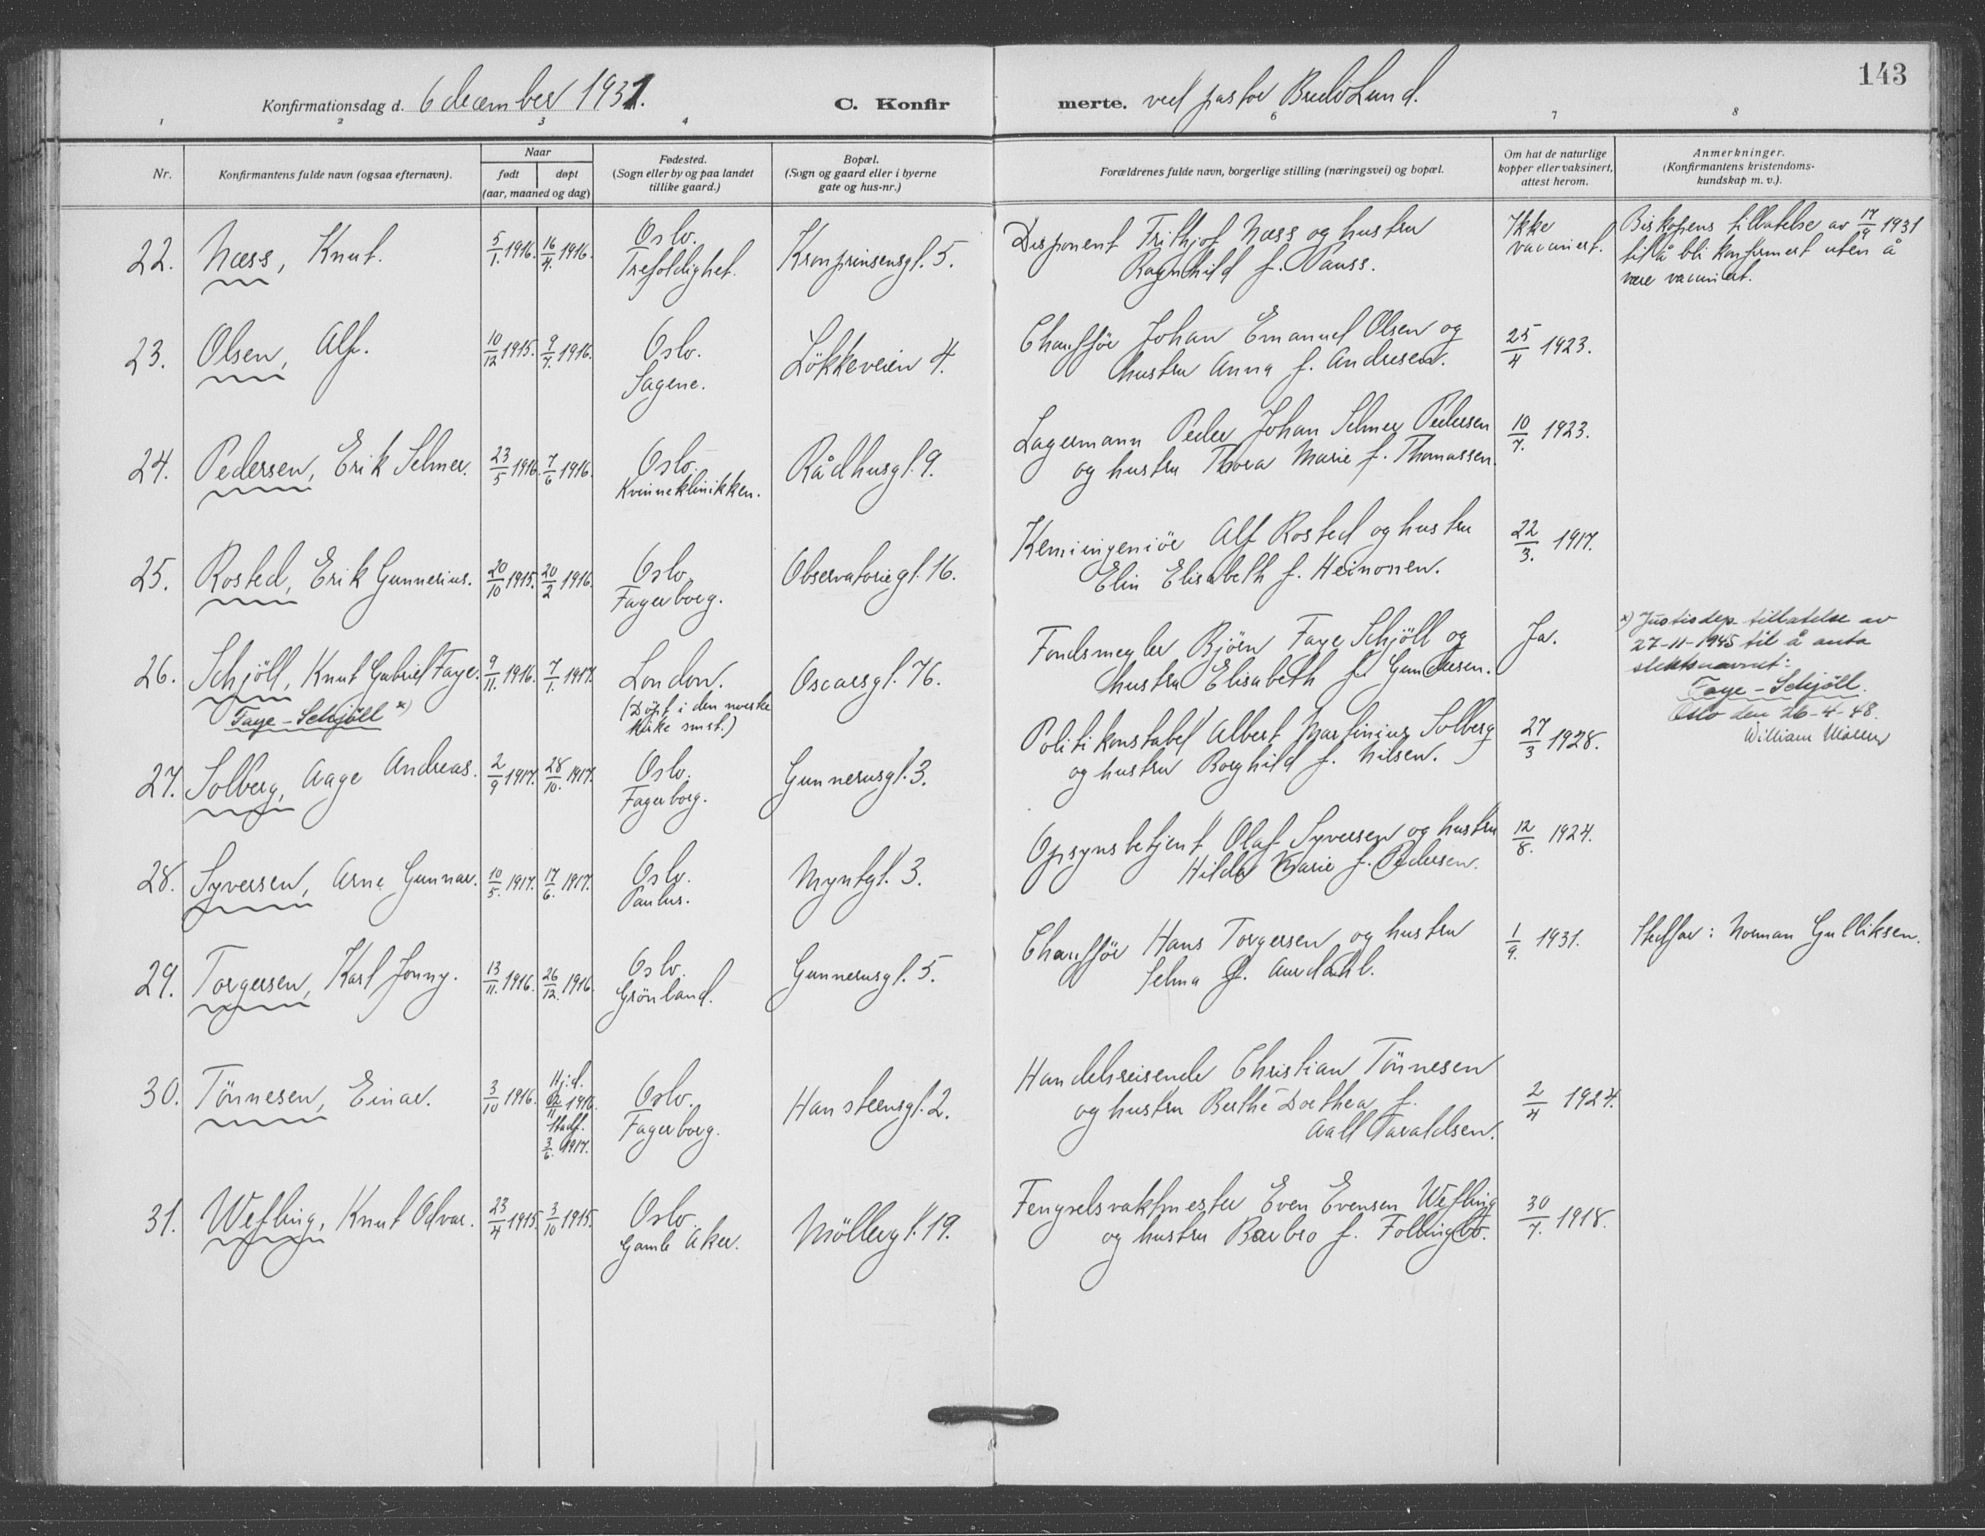 143
Konfirmationsdag d. 6 december 1931. C. Konfirmerte. ved pastor Bredo Lund.
1 2 3 4 6 7 8
Nr.
Konfirmantens fulde navn (ogsaa efternavn).
Naar
født
døpt
(aar, maaned og dag)
Fødested.
(Sogn eller by og paa landet
tillike gaard.)
Bopæl.
(Sogn og gaard eller i byerne
gate og hus-nr.)
Forældrenes fulde navn, borgerlige stilling (næringsvei) og bopæl.
Om hat de naturlige
kopper eller vaksinert,
attest herom.
Anmerkninger.
(Konfirmantens kristendoms-
kundskap m. v.).
22. Næss, Knut. 5/1. 1916. 16/4. 1916. Oslo. Kronprinsensgt. 5. Disponent Frithjof Næss og hustru Ikke Biskopens tillatelse av 17/9 1931
Trefoldighet. Ragnhild f. Pauss. vaccinert. til å bli konfirmert uten å
være vaccinert.
23. Olsen, Alf. 10/12 1915. 9/7. 1916. Oslo. Løkkeveien 4. Chauffør Johan Emanuel Olsen og 25/4 1923.
Sagene. hustru Anna f. Andresen.
24. Pedersen, Erik Selmer. 23/5 1916. 7/6 1916. Oslo. Rådhusgt. 9. Lagermann Peder Johan Selmer Pedersen 10/7. 1923.
Kvinneklinikken. og hustru Thora Marie f. Thomassen.
25. Rosted, Erik Gunnerius. 20/10 1915. 20/2 1916. Oslo. Observatoriegt. 16. Kemiingeniør Alf Rosted og hustru 22/3. 1917.
Fagerborg. Elin Elisabeth f. Heinonen.
26. Schjöll, Knut Gabriel Faye. 9/11. 1916. 7/1. 1917. London. Oscarsgt. 76. Fondsmegler Bjørn Faye Schjöll og Ja. x) Justisdep. tillatelse av
Faye-Schjöll x) (Döpt i den norske hustru Elisabeth f. Gundersen. 27-11-1945 til å anta
kirke smst.) slektsnavnet:
Faye-Schjöll.
Oslo den 26-4-48.
William
27. Solberg, Aage Andreas. 2/9 1917. 28/10. 1917. Oslo. Gunnerusgt. 3. Politikonstabel Albert Martinius Solberg 27/3 1928.
Fagerborg. og hustru Borghild f. Nilsen.
28. Syversen, Arne Gunnar. 10/5. 1917. 17/6. 1917. Oslo. Myntgt. 3. Opsynsbetjent Olaf Syversen og hustru 12/8. 1924.
Paulus. Hilda Marie f. Pedersen.
29. Torgersen, Karl Jonny. 13/11. 1916. 26/12. 1916. Oslo. Gunnerusgt. 5. Chauffør Hans Torgersen og hustru 1/9. 1931. Stedfar: Norman Gulliksen.
Grönland. Selma f. Aurdahl.
30. Tönnesen, Einar. 3/10 1916. Hj.d. 1916. Oslo. Hansteensgt. 2. Handelsreisende Christian Tönnesen 2/4 1924.
Stadf. Fagerborg. og hustru Berthe Dorthea f.
3/6. 1917. Aall Taraldsen.
31. Wefling, Knut Odvar. 23/4 1915. 3/10 1915. Oslo. Möllergt. 19. Fengselsvaktmester Even Evensen Wefling 30/7. 1918.
Gamle Aker. og hustru Barbro f. Follingbo.